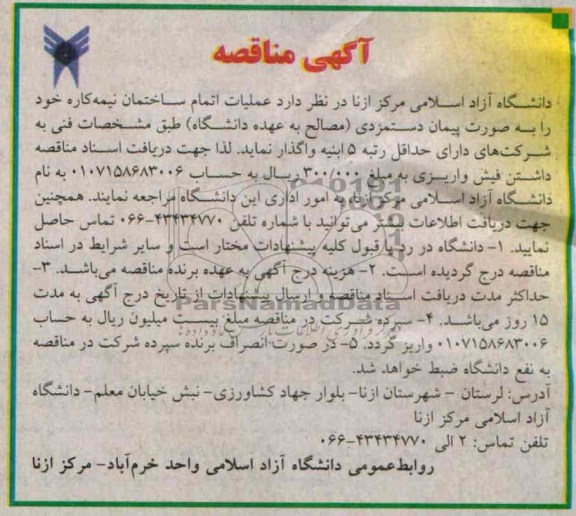 آگهی مناقصه
دانشگاه آزاد اسلامی مرکز ازنا در نظر دارد عملیات اتمام ساختمان نیمه‌کاره خود
را به صورت پیمان دستمزدی (مصالح به عهده دانشگاه) طبق مشخصات فنی به
شرکت‌های دارای حداقل رتبه ۵ ابنیه واگذار نماید. لذا جهت دریافت اسناد مناقصه
داشتن فیش واریزی به مبلغ ۳۰۰/۰۰۰ ریال به حساب ۰۱۰۷۱۵۸۶۸۳۰۰۶ به نام
دانشگاه آزاد اسلامی مرکز ازنا، به امور اداری این دانشگاه مراجعه نمایند. همچنین
جهت دریافت اطلاعات بیشتر می‌توانید با شماره تلفن ۴۳۴۳۴۷۷۰-۰۶۶ تماس حاصل
نمایید. ۱- دانشگاه در رد یا قبول کلیه پیشنهادات مختار است و سایر شرایط در اسناد
مناقصه درج گردیده است. ۲- هزینه درج آگهی به عهده برنده مناقصه می‌باشد. ۳-
حداکثر مدت دریافت اسناد مناقصه و ارسال پیشنهادات از تاریخ درج آگهی به مدت
ParsNamadData
۱۵ روز می‌باشد. ۴- سپرده شرکت در مناقصه مبلغ بیست میلیون ریال به حساب
۰۱۰۷۱۵۸۶۸۳۰۰۶ واریز گردد. ۵- در صورت انصراف برنده سپرده شرکت در مناقصه
به نفع دانشگاه ضبط خواهد شد.
آدرس: لرستان - شهرستان ازنا- بلوار جهاد کشاورزی- نبش خیابان معلم- دانشگاه
آزاد اسلامی مرکز ازنا
تلفن تماس: ۲ الی ۴۳۴۳۴۷۷۰-۰۶۶
روابط‌عمومی دانشگاه آزاد اسلامی واحد خرم‌آباد- مرکز ازنا